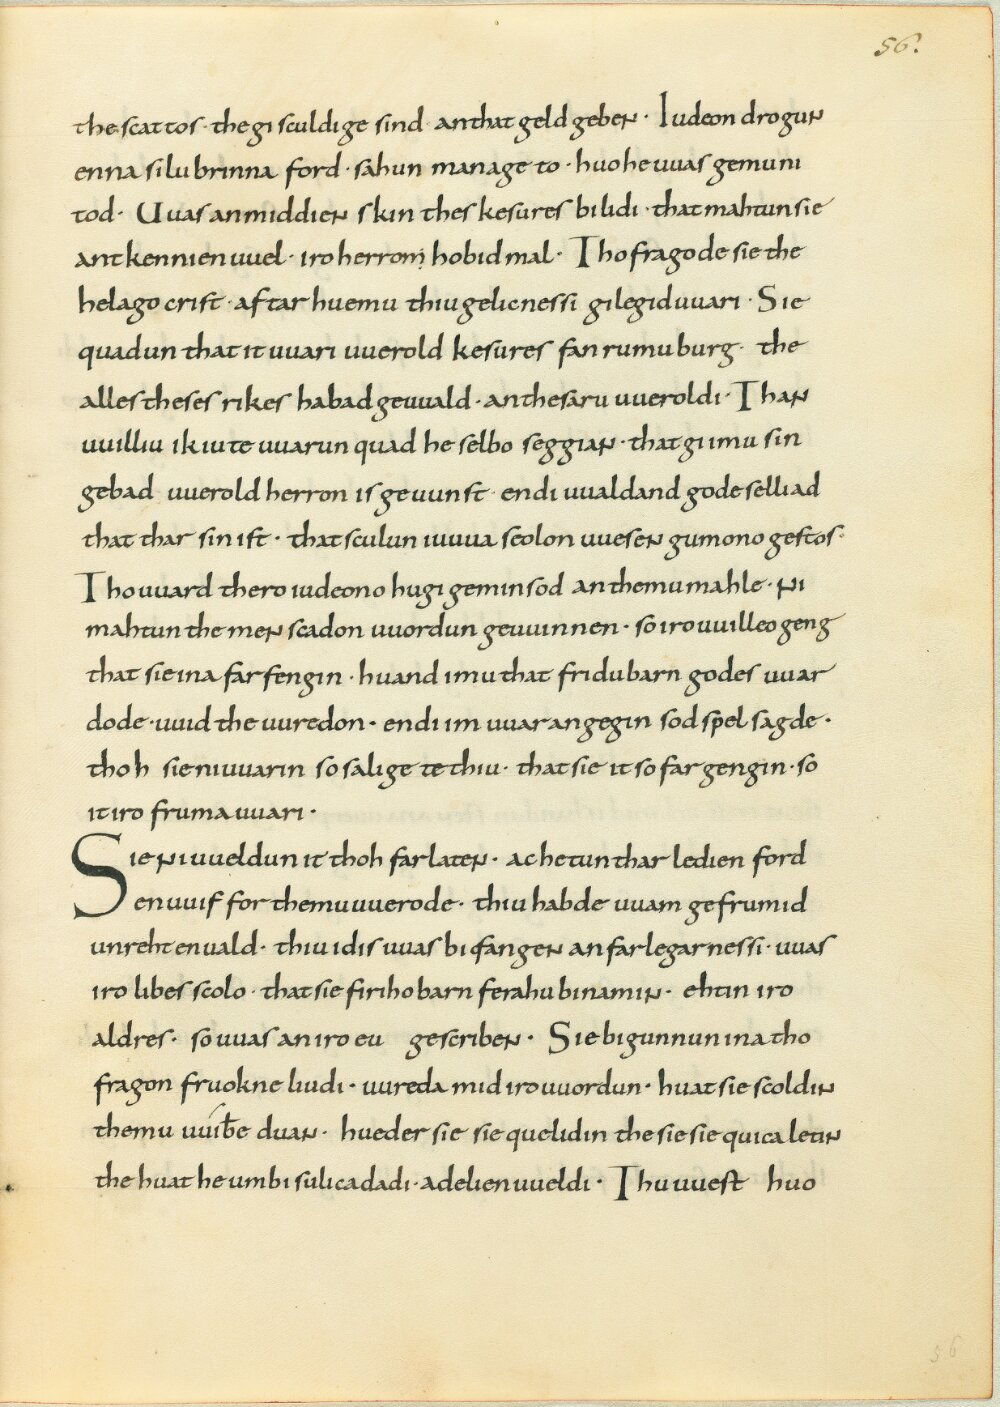 56.
the scattos · the gi sculdige sind an that geld geben · Iudeon drogun
enna silubrinna ford · sahun manage to · huo he uuas gemuni
tod · Uuas an middien skin thes kesures biludi · that mahtun sie
antkennien uuel · iro herron hobidmal · Tho fragode sie the
helago crist · aftar huemu thiu gelicnessi gilegid uuari · Sie
quadun that it uuari uuerold kesures fan rumuburg · the
alles theses rikes habad geuuald · an thesaru uueroldi · Than
uuilliu ik iu te uuarun quad he selbo seggian · that gi imu sin
gebad uuerold herron is geuunst endi uualdand gode selliad
that thar sin ist · that sculun iuuua seolon uuesen gumono gestos ·
Tho uuard thero iudeono hugi geminsod an themu mahle · ni
mahtun the men scadon uuordun geuuinnen · so iro uuilleo geng
that sie ina farfengin · huand imu that fridubarn godes uuar
dode · uuid the uuredon · endi im uuar angegin sod spel sagde ·
thoh sie ni uuarin so salige te thiu · that sie it so fargengin · so
it iro fruma uuari ·
Sie ni uueldun it thoh farlaten · ac hetun thar ledien ford
en uuif for themu uuerode · thiu habde uuam gefrumid
unreht enuald · thiu idis uuas bifangen an farlegarnessi · uuas
iro libes scolo · that sie firiho barn ferahu binamin · ehtin iro
aldres · so uuas an iro eu gescriben · Sie bigunnun ina tho
fragon fruokne liudi · uureda mid iro uuordun · huat sie scoldin
themu uuibe duan · hueder sie sie quelidin the sie sie quica letin
the huat he umbi sulica dadi · adelien uueldi · Thu uuest huo
56